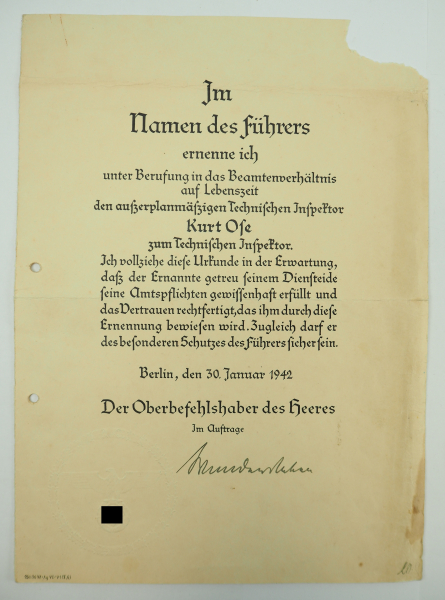 Im
Namen des Führers
ernenne ich
unter Berufung in das Beamtenverhältnis
auf Lebenszeit
den außerplanmäßigen Technischen Inspektor
Kurt Ose
zum Technischen Inspektor.
Ich vollziehe diese Urkunde in der Erwartung,
daß der Ernannte getreu seinem Diensteide
seine Amtspflichten gewissenhaft erfüllt und
das Vertrauen rechtfertigt, das ihm durch diese
Ernennung bewiesen wird. Zugleich darf er
des besonderen Schutzes des Führers sicher sein.
Berlin, den 30. Januar 1942
Der Oberbefehlshaber des Heeres
Im Auftrage